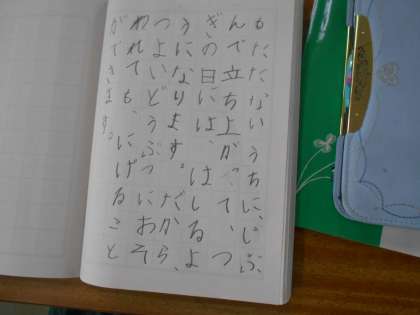 もたたないうちに、じぶ
んで立ち上がって、つ
ぎの日には、はしるよ
うになります。だから、
つよいどうぶつにおそ
われても、にげること
ができます。